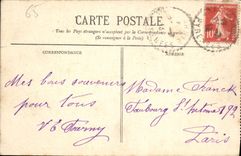 65
CARTE POSTALE
Tous les Pays étrangers n'acceptent pas la Correspondance
(Se renseigner à la Poste)
CORRESPONDANCE
Mes bons souvenirs
pour tous
Madame Franck
Faubourg St Antoine 192
Paris
10